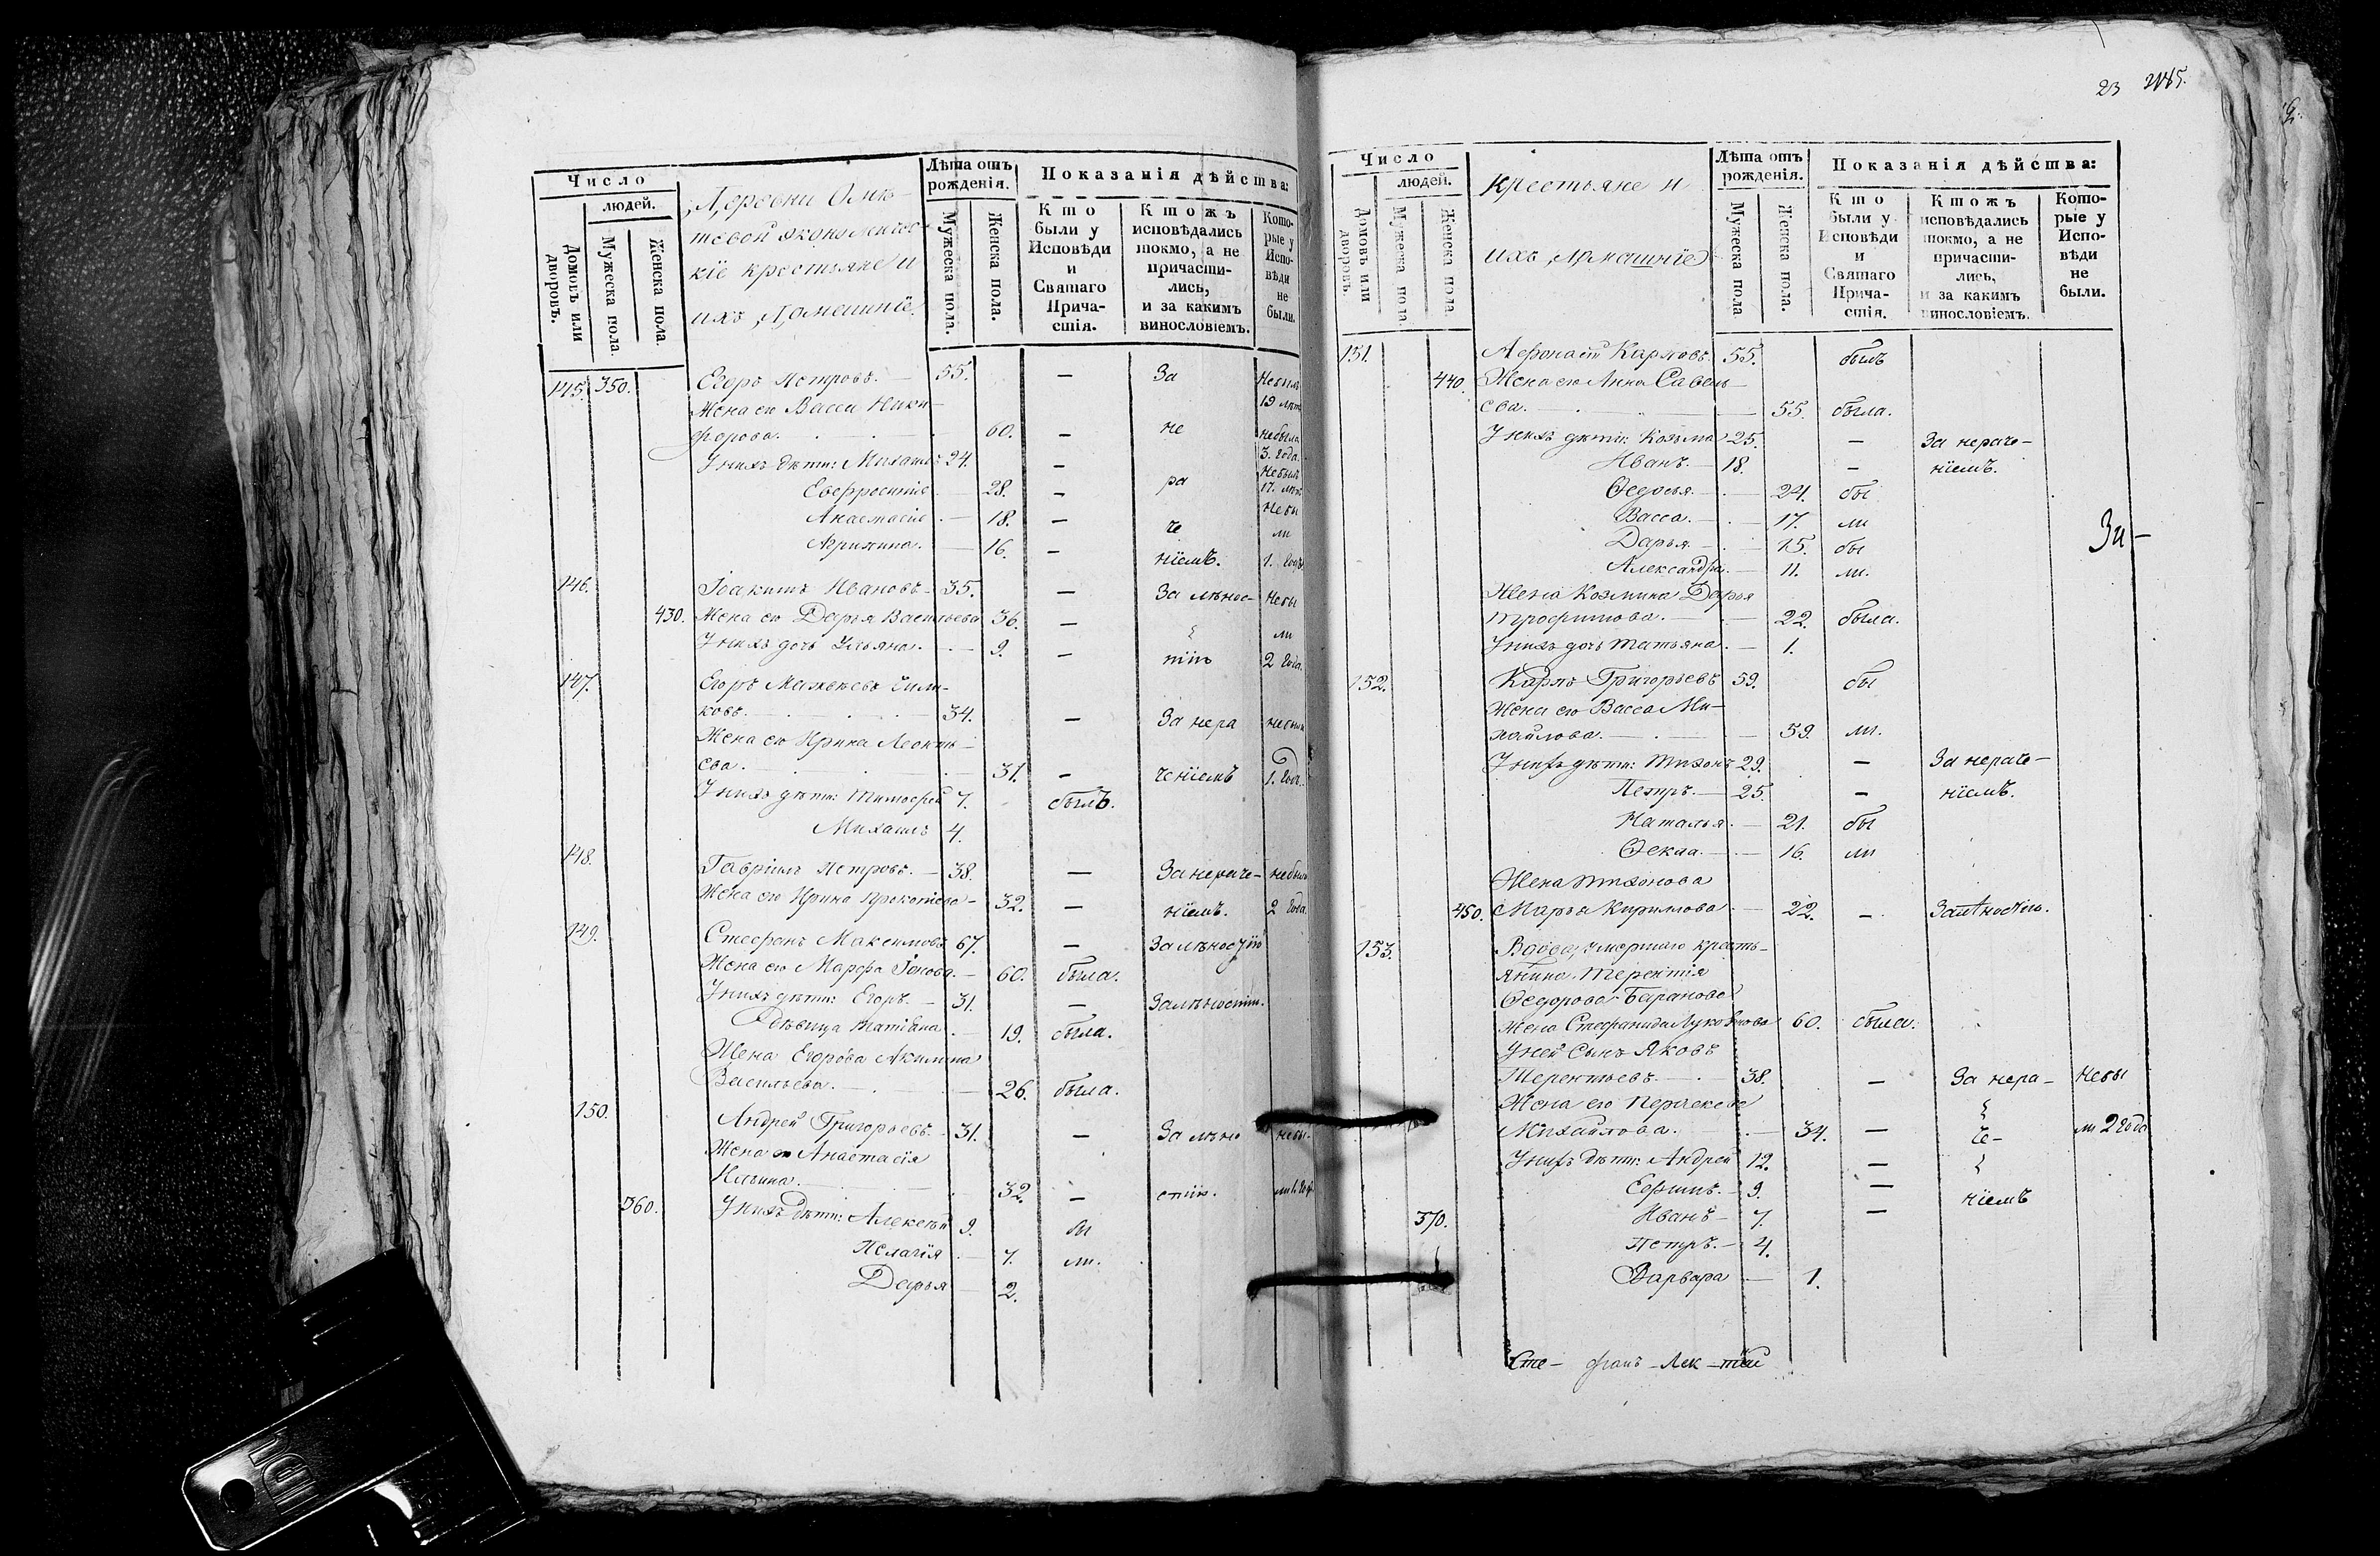 Число
людей.
Домовъ или дворовъ.
Мужеска пола.
Женска пола.
Деревни Оме-
тевой экономичес-
кіе крестьяне и
ихъ домашніе.
Лѣта отъ рожденія.
Мужеска пола.
Женска пола.
Показанія дѣйства:
Кто были у Исповѣди и Святаго Прича-стія.
Ктожъ исповѣдались токмо, а не причасти-лись, и за какимъ винословіемъ.
Кото-рые у Испо-вѣди не были.
145. 350. Егоръ Петровъ. — 55. — За Небылъ
19 лѣтъ
Жена ею Васса Ники-
форова. 60. — не небыла
3. года.
У нихъ дѣти: Михаилъ 24. — Небылъ
17. лѣтъ
Евфросинія 28. — ра Небы
Анастасія 18. — че ли
Агрипина. 16. — ніемъ. 1. годъ
146. Іоакимъ Ивановъ 35. — За лѣнос- Небы
430. Жена ею Дарья Васильева 36. — ли
У нихъ дочь Ульяна. 9. — тію 2 года.
147. Егоръ Матвѣевъ
ковъ. 34. — За нера небыли
Жена ею Ирина Леонть-
ева. 31. — ченіемъ 1. годъ.
У нихъ дѣти: Тимофей 7. былъ.
Михаилъ 4.
148. Гавріилъ Петровъ. — 38. — За нераче- небыли
Жена ею Ирина Прокопіева 32. — ніемъ. 2 года.
149. Стефанъ Максимовъ 67. — За лѣностію
Жена ею Марфа Іонова. — 60. была.
У нихъ дѣти: Егоръ. — 31. — За лѣностію.
дѣвица Татіана. 19. была.
Жена Егорова Акилина
Васильева. 26. была.
150. Андрей Григорьевъ 31. — За лѣно небы-
Жена ею Анастасія
Ильина. 32. — стію. ли 1. годъ
360. У нихъ дѣти: Алексѣй 9. бы
Пелагія 7. ли.
Дарья 2.
23
Число
людей.
Домовъ или дворовъ.
Мужеска пола.
Женска пола.
крестьяне и
ихъ домашніе
Лѣта отъ рожденія.
Мужеска пола
Женска пола.
Показанія дѣйства:
Кто были у Исповѣди и Святаго Прича-стія.
Ктожъ исповѣдались токмо, а не причасти-лись, и за какимъ винословіемъ.
Кото-рые у Испо-вѣди не были.
151. Афонасій Карповъ. 55. былъ
440. Жена ею Анна Савель-
ева. 55. была.
У нихъ дѣти: Козьма 25. — За нераче-
Иванъ. — 18. — ніемъ.
Ѳедосья. 24. бы
Васса. 17. ли
Дарья. 15. бы
Александра. 11. ли.
Жена Козмина Дарья
Трофимова. 22. была.
У нихъ дочь Татьяна. 1.
152. Карпъ Григорьевъ 59. бы
Жена ею Васса Ми-
хайлова. 59. ли.
У нихъ дѣти: Тихонъ 29. — За нераче-
Петръ. — 25. — ніемъ.
Наталья. 21. бы
Ѳекла. 16. ли
Жена Тихонова
450. Марья Кирилова. 22. — За лѣностію.
153. Вдова, умершаго кресть-
янина Терентія
Ѳедорова Баранова
жена Стефанида Луковнова 60. была.
У ней сынъ Яковъ
Терентьевъ. — 38. — За нера- Небы
Жена ею
Михайлова. 34. — че- ли 2 года
У нихъ дѣти: Андрей 12. —
Ефимъ. 9. — ніемъ
370. Иванъ 7. —
Петръ. — 4.
Варвара 1.
Сте- фанъ -Лек -тій